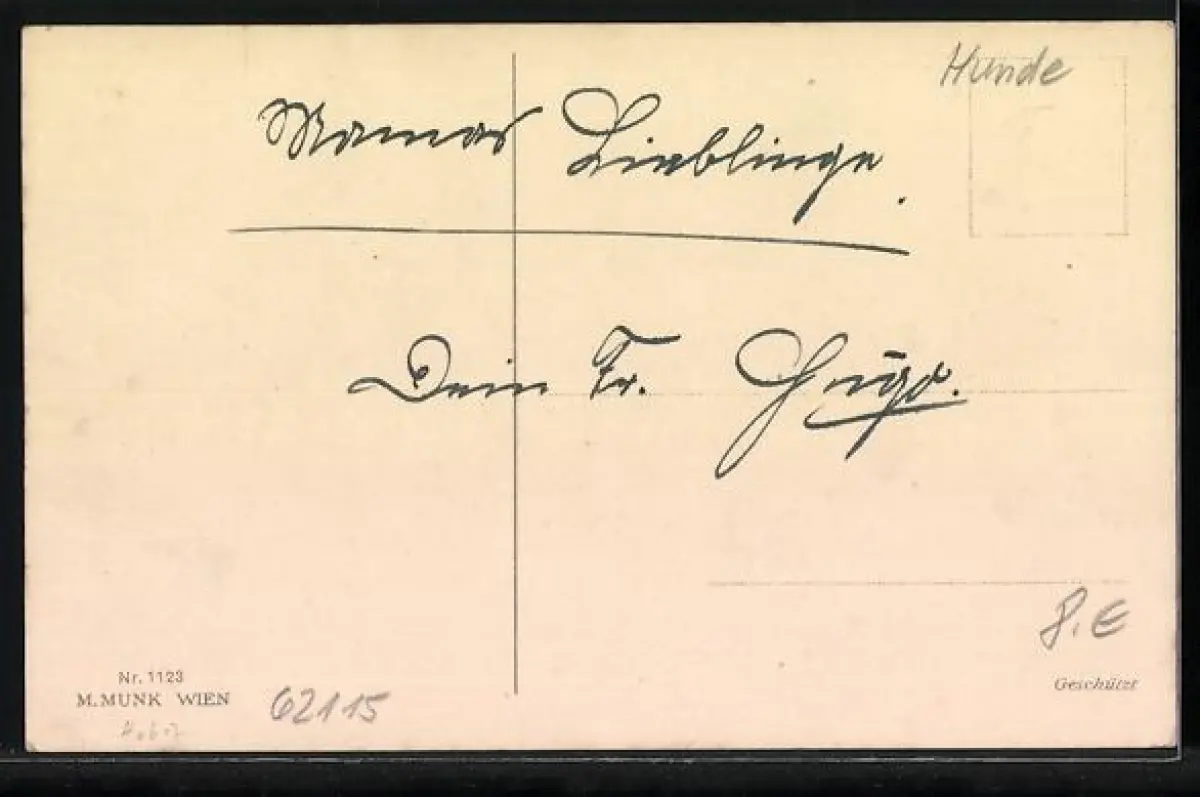 Hunde
Mamas Lieblinge.
Dein Fr. Hugo.
8.€
Nr. 1123
M. MUNK WIEN
62115
Geschützt